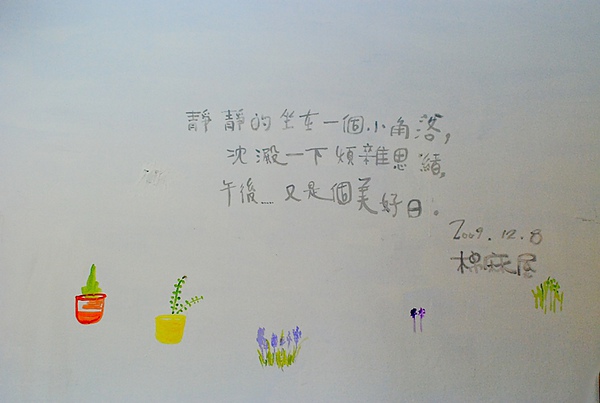 靜靜的坐在一個小角落,
沈澱一下煩雜思緒,
午後....又是個美好日.
2009.12.8
棉麻屋